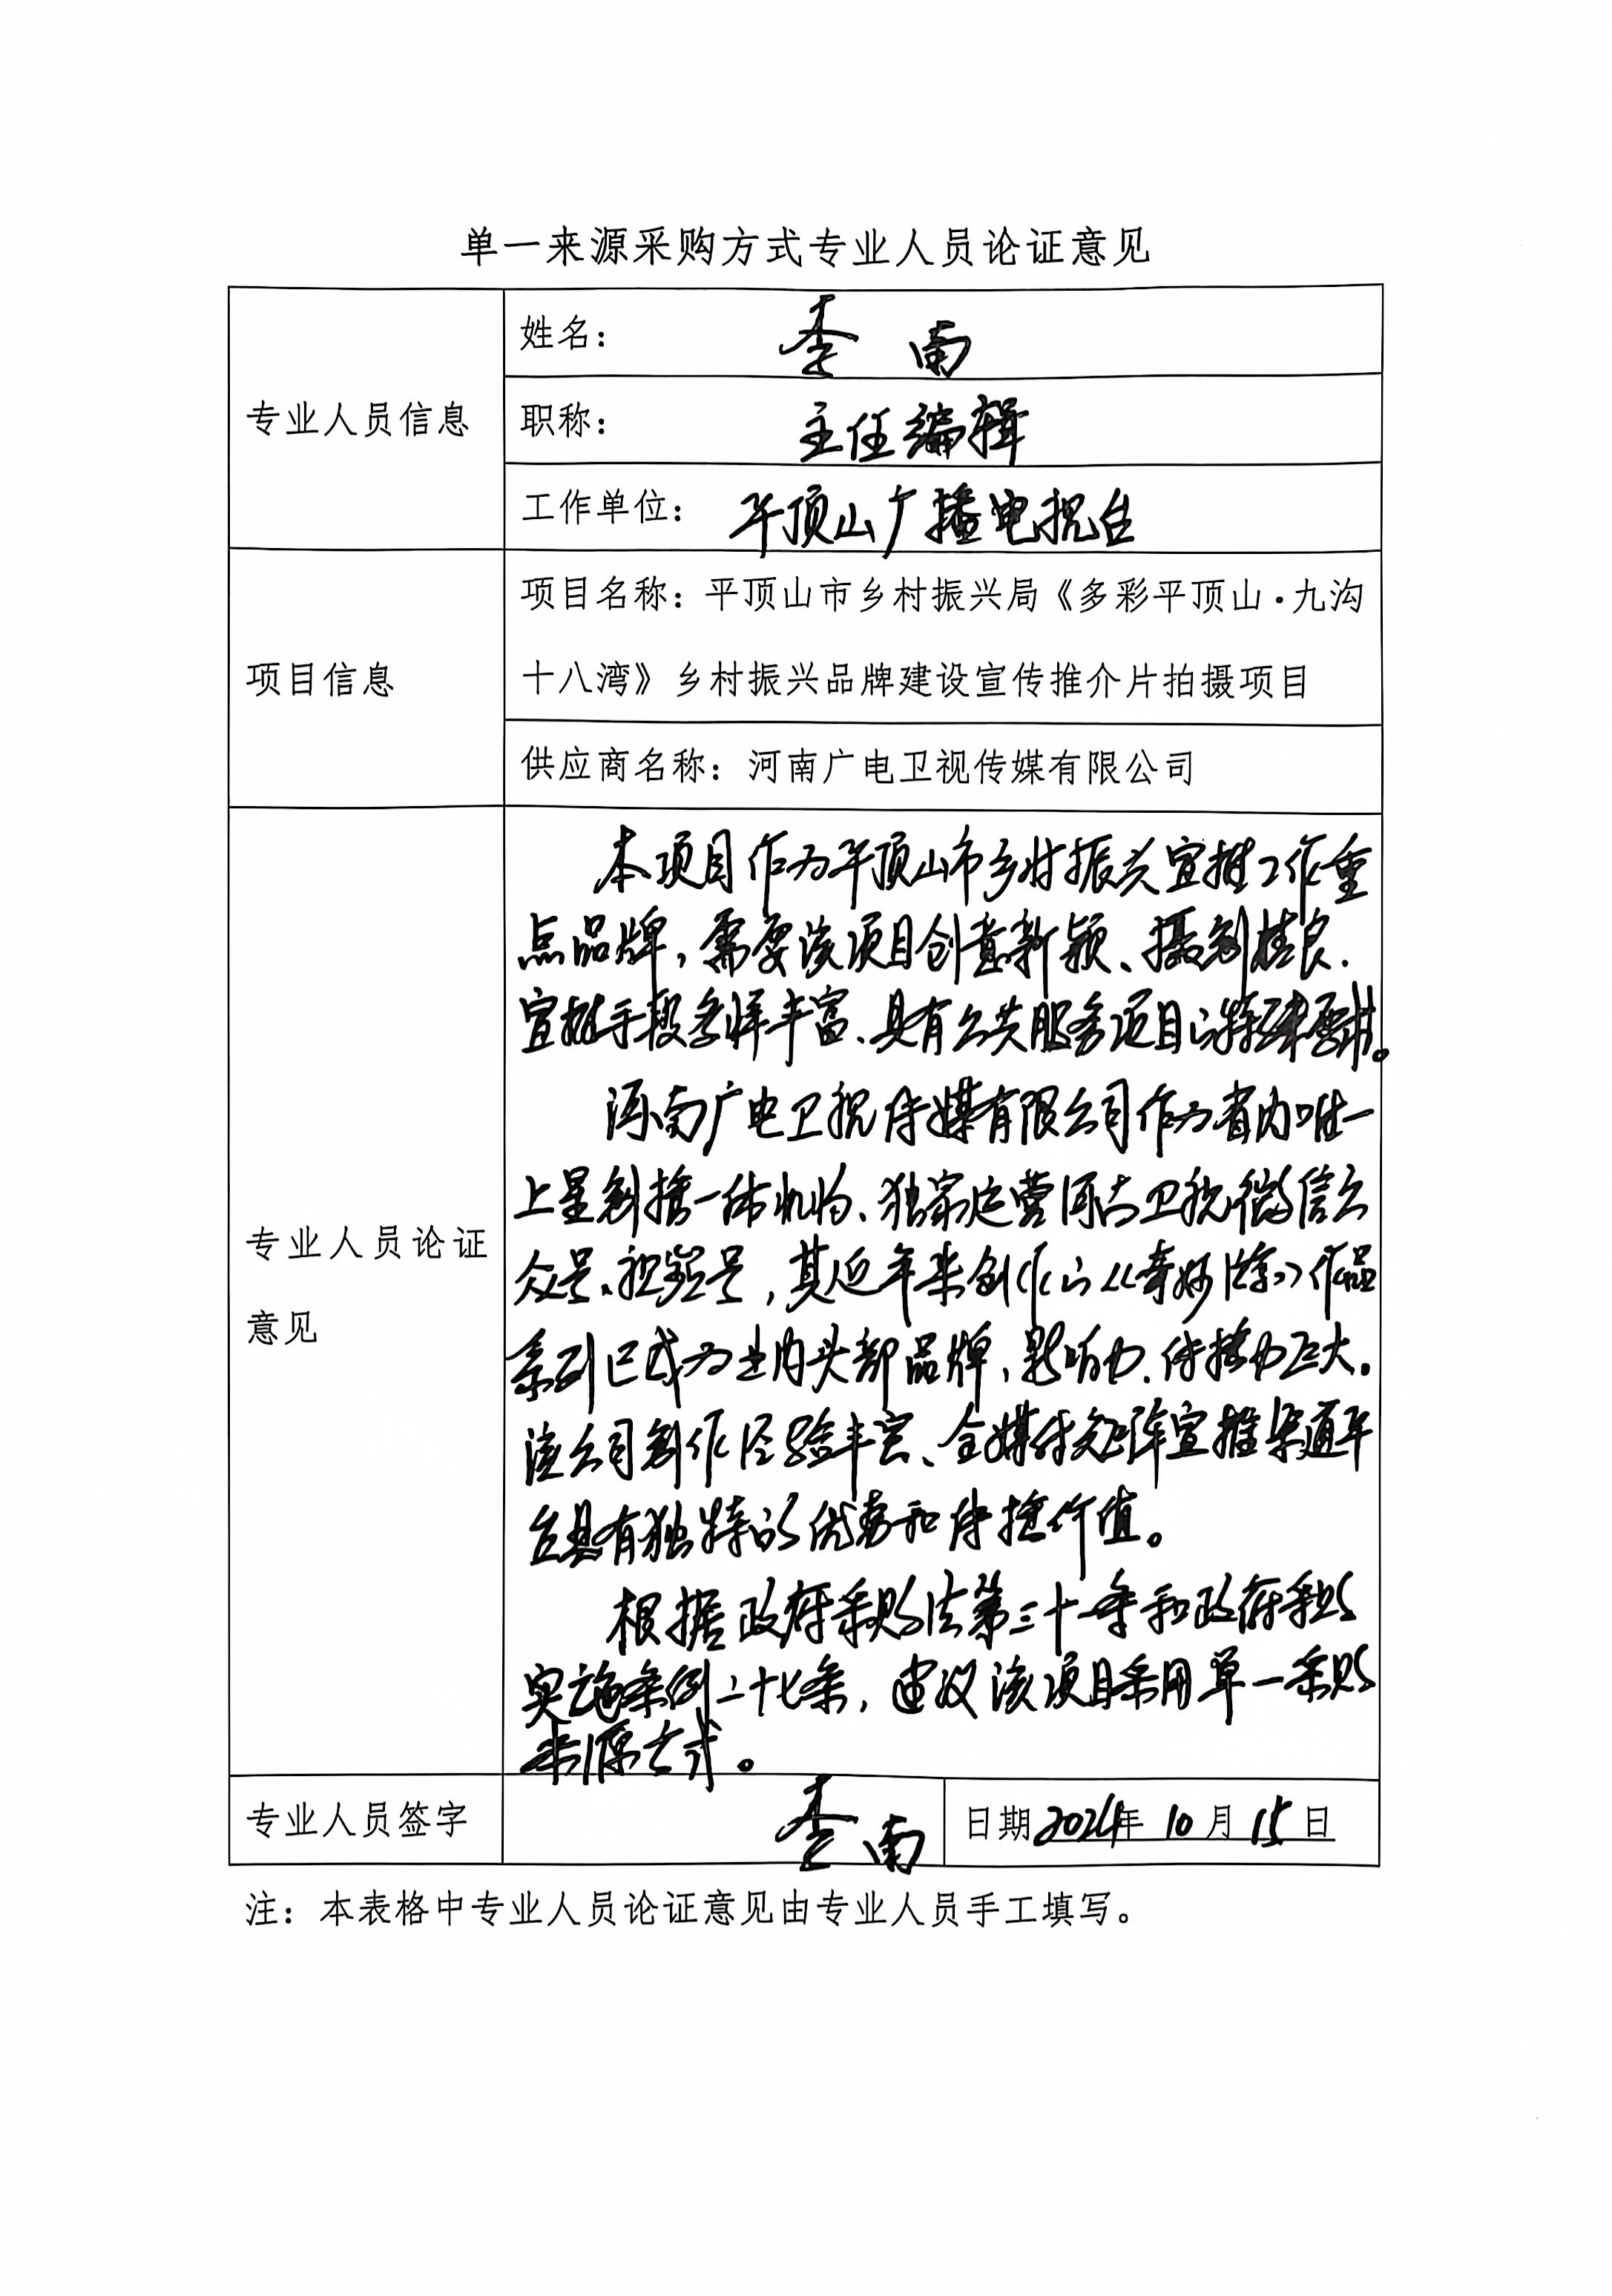 单一来源采购方式专业人员论证意见
专业人员信息
姓名： 李南
职称： 主任编辑
工作单位： 平顶山广播电视台
项目信息
项目名称：平顶山市乡村振兴局《多彩平顶山·九沟
十八湾》乡村振兴品牌建设宣传推介片拍摄项目
供应商名称：河南广电卫视传媒有限公司
专业人员论证
意见
本项目作为平顶山市乡村振兴宣推工作重
点品牌，需要该项目创意新颖、摄制精良、
宣推手段多样丰富、具有公共服务项目的特殊要求。
河南广电卫视传媒有限公司作为省内唯一
上星制播一体机构、独家运营河南卫视微信公
众号、视频号，其近年来创作的《奇妙游》作品
系列已成为业内头部品牌，影响力、传播力巨大。
该公司制作经验丰富、全媒体矩阵宣推渠道平
台具有独特的优势和传播价值。
根据政府采购法第三十一条和政府采购
实施条例二十七条，建议该项目采用单一采购
来源方式。
专业人员签字
李南
日期2024年10月15日
注：本表格中专业人员论证意见由专业人员手工填写。